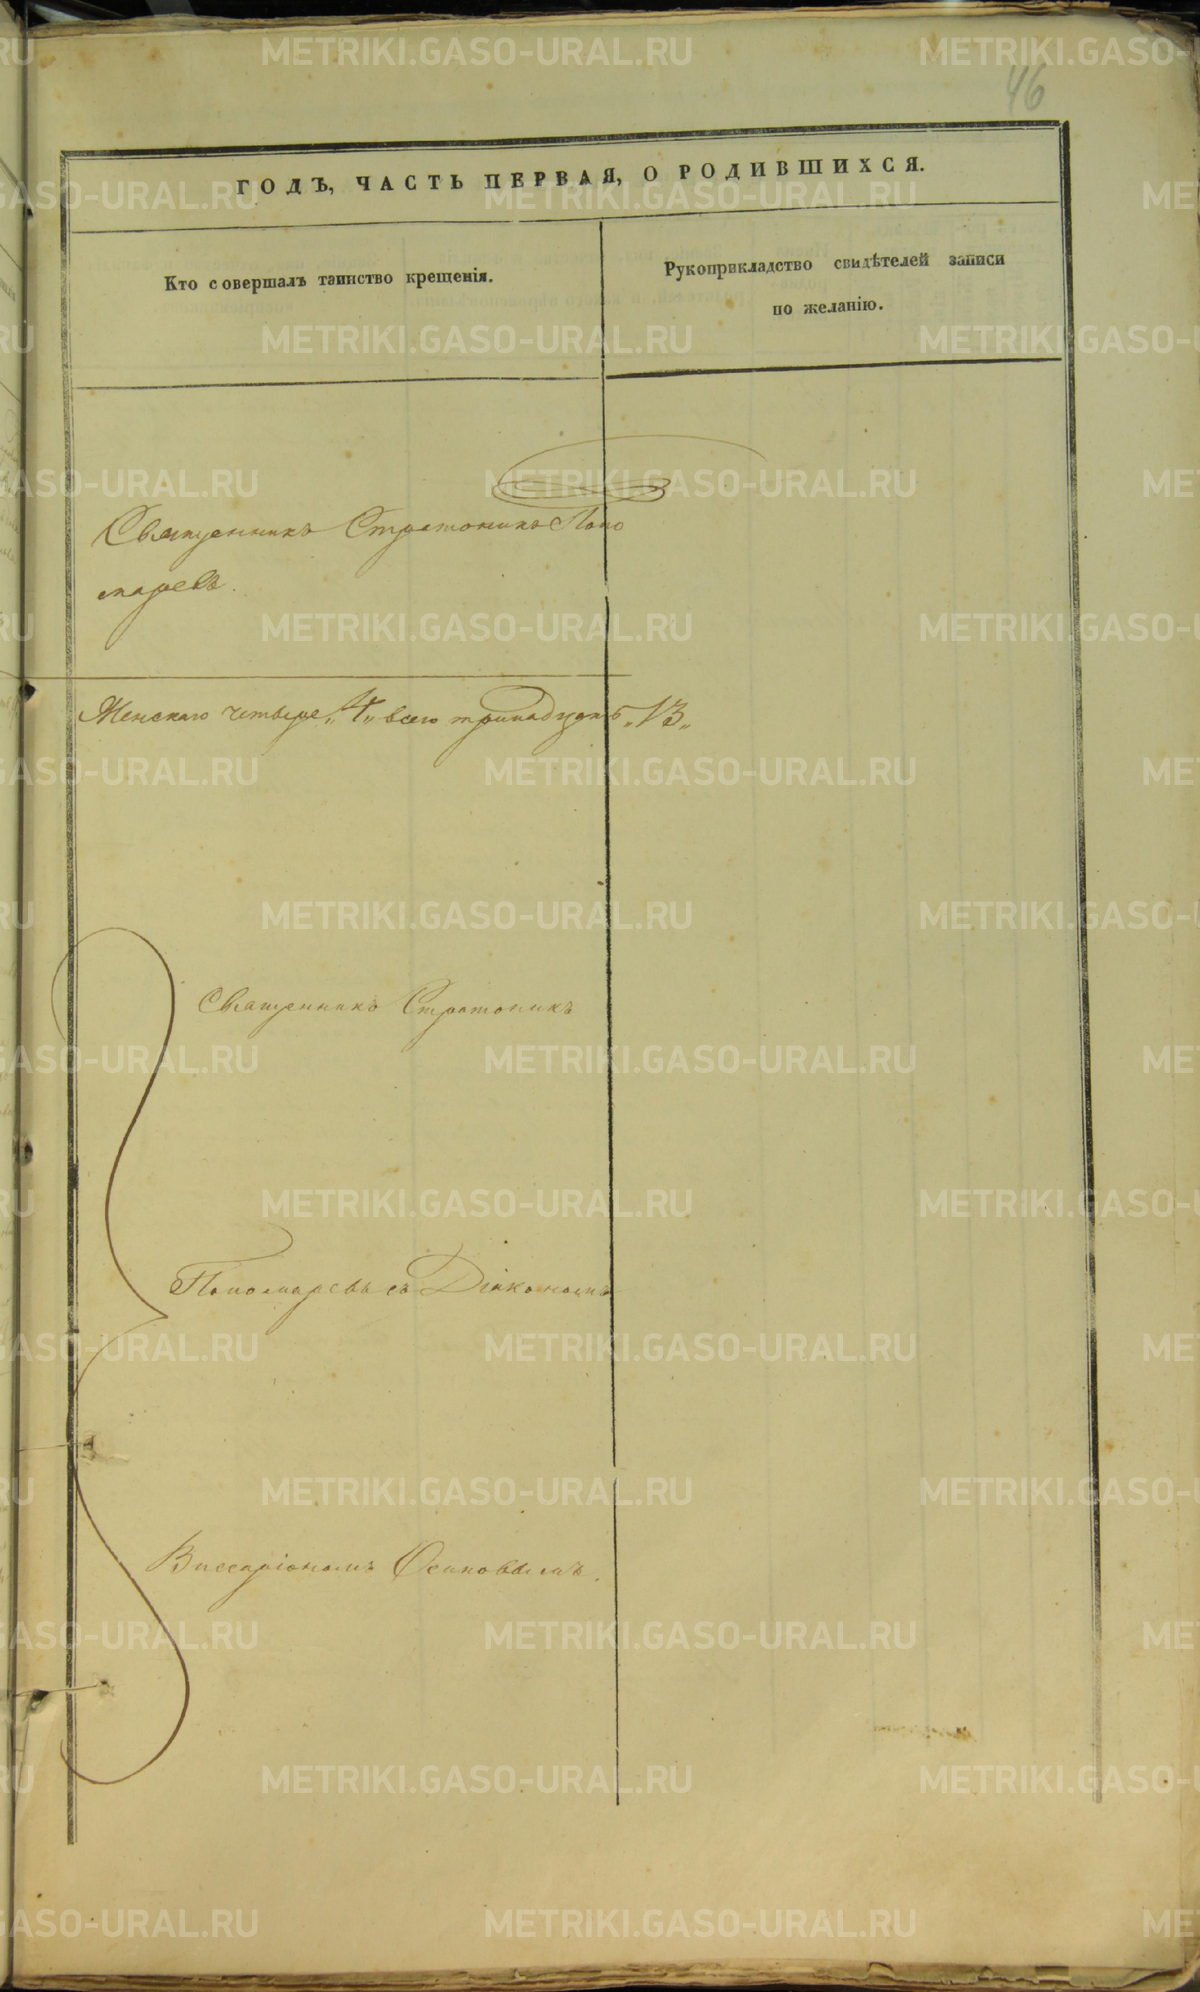 46
ГОДЪ, ЧАСТЬ ПЕРВАЯ, О РОДИВШИХСЯ.
Кто совершалъ таинство крещенія.
Рукоприкладство свидѣтелей записи
по желанію.
Священникъ Стратоникъ Поно
маревъ.
Женскаго четыре „4„ всего тринадцать „13„
Священникъ Стратоникъ
Пономаревъ съ Діакономъ
Виссаріономъ Осиповымъ.
METRIKI.GASO-URAL.RU